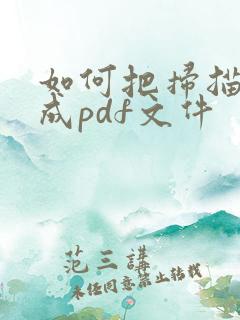 如何把扫描
成pdf文件
范三讲
未经同意禁止转载